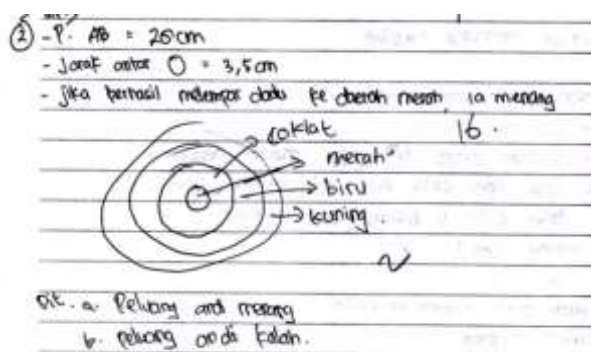 ② - P. AB = 28 cm
- Jarak antar O = 3,5 cm
- jika berhasil melempar dadu ke daerah merah, ia menang
16.
coklat
merah
biru
kuning
Dit. a. Peluang andi menang
b. peluang andi kalah.